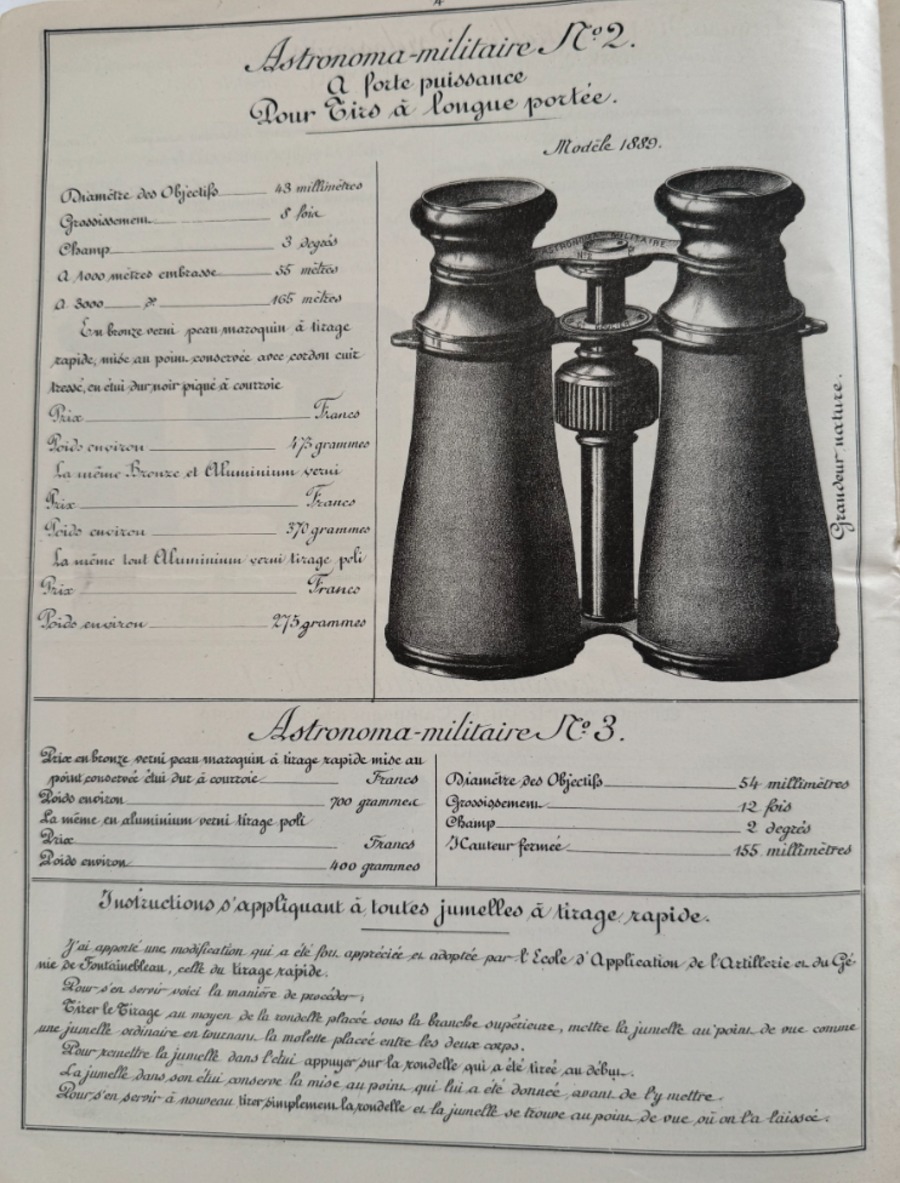 4
Astronoma-militaire Nº 2.
A forte puissance
Pour Tirs à longue portée.
Modèle 1889.
Diamètre des Objectifs 43 millimètres
Grossissement 8 fois
Champ 3 degrés
A 1000 mètres embrasse 55 mètres
A 3000 _ dº _ 165 mètres
En bronze verni peau maroquin à tirage
rapide, mise au point conservée avec cordon cuir
tressé, en étui dur noir piqué à courroie
Prix Francs
Poids environ 475 grammes
La même Bronze et Aluminium verni
Prix Francs
Poids environ 370 grammes
La même tout Aluminium verni tirage poli
Prix Francs
Poids environ 275 grammes
ASTRONOMA MILITAIRE
Nº2
Grandeur nature.
Astronoma-militaire Nº 3.
Prix en bronze verni peau maroquin à tirage rapide mise au
point conservée étui dur à courroie Francs
Poids environ 700 grammes
La même en aluminium verni tirage poli
Prix Francs
Poids environ 400 grammes
Diamètre des Objectifs 54 millimètres
Grossissement 12 fois
Champ 2 degrés
Hauteur fermée 155 millimètres
Instructions s'appliquant à toutes jumelles à tirage rapide.
J'ai apporté une modification qui a été fort appréciée et adoptée par l'Ecole d'Application de l'Artillerie et du Gé-
nie de Fontainebleau, celle du tirage rapide.
Pour s'en servir voici la manière de procéder;
Tirer le Tirage au moyen de la rondelle placée sous la branche supérieure, mettre la jumelle au point de vue comme
une jumelle ordinaire en tournant la molette placée entre les deux corps.
Pour remettre la jumelle dans l'étui appuyer sur la rondelle qui a été tirée au début.
La jumelle dans son étui conserve la mise au point qui lui a été donnée, avant de l'y mettre.
Pour s'en servir à nouveau tirer simplement la rondelle et la jumelle se trouve au point de vue où on l'a laissée.